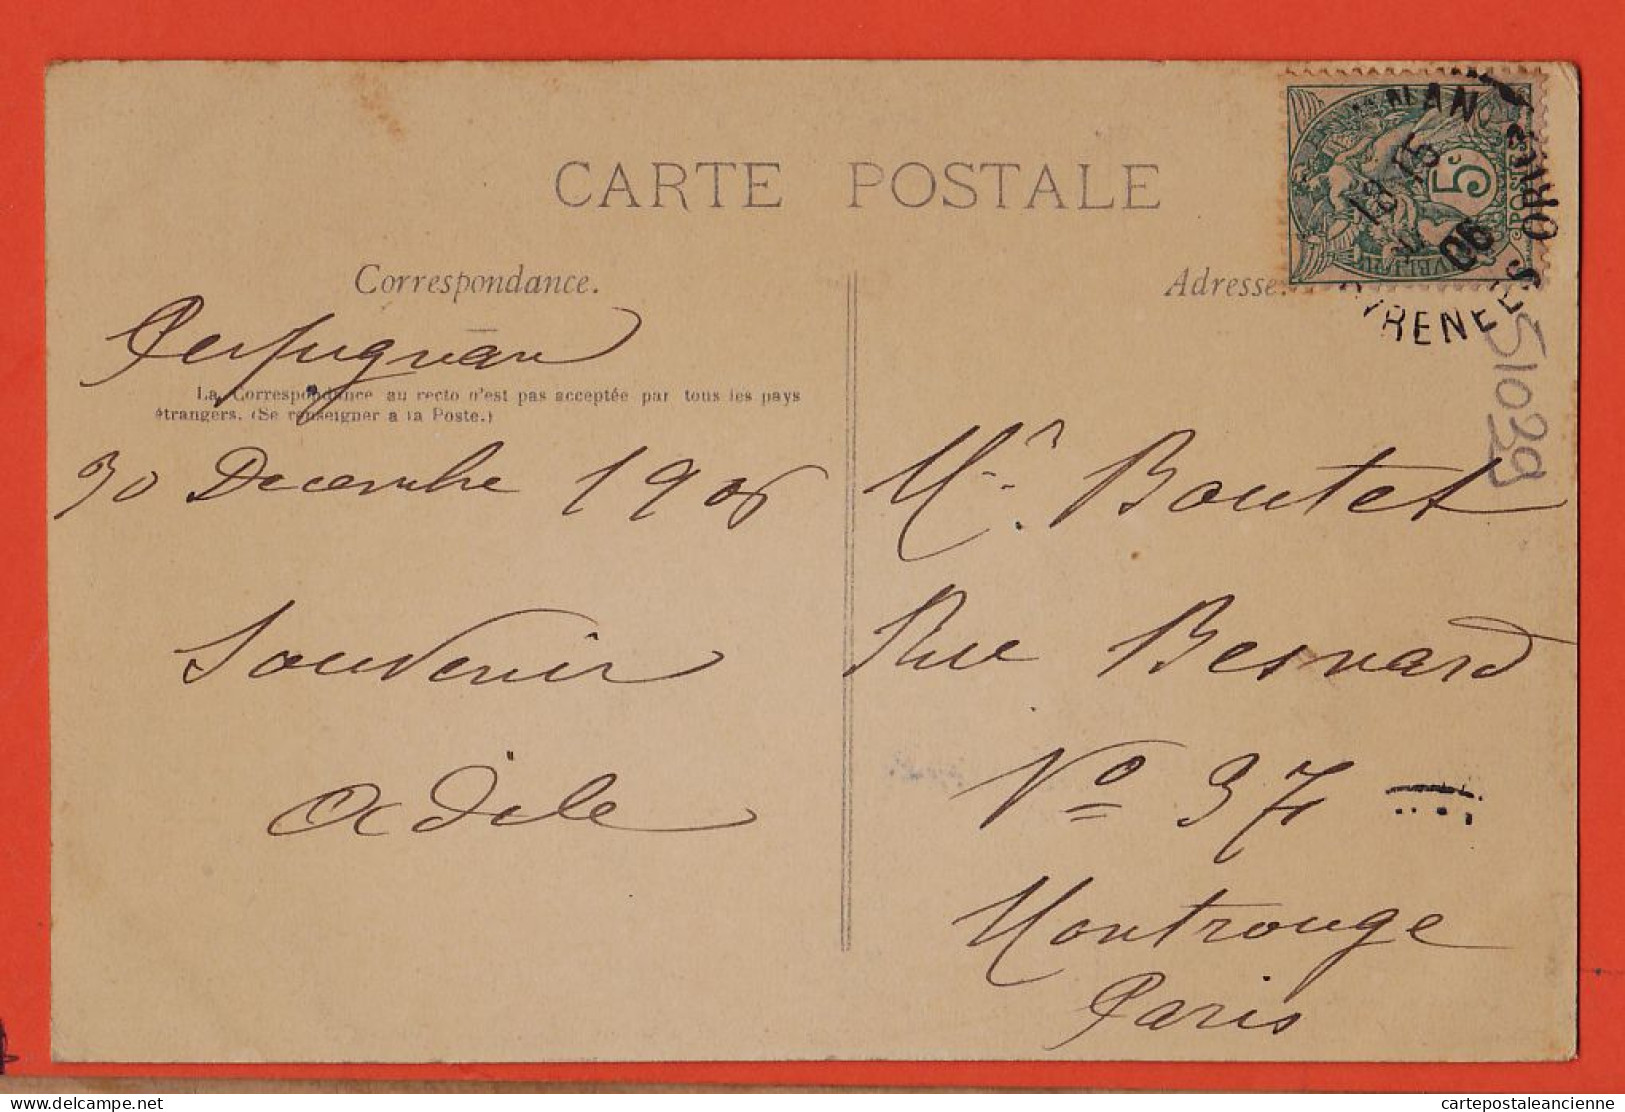 CARTE POSTALE
Correspondance.
Adresse.
Perpignan
La Correspondance au recto n'est pas acceptée par tous les pays
étrangers. (Se renseigner a la Poste.)
30 Decembre 1906
Souvenir
Adèle
Mr. Boutet
Rue Besnard
No 37
Montrouge
Paris
NAN
18 15
06
PYRENEES ORles
5c
POSTES
51029
delcampe.net
cartepostaleancienne